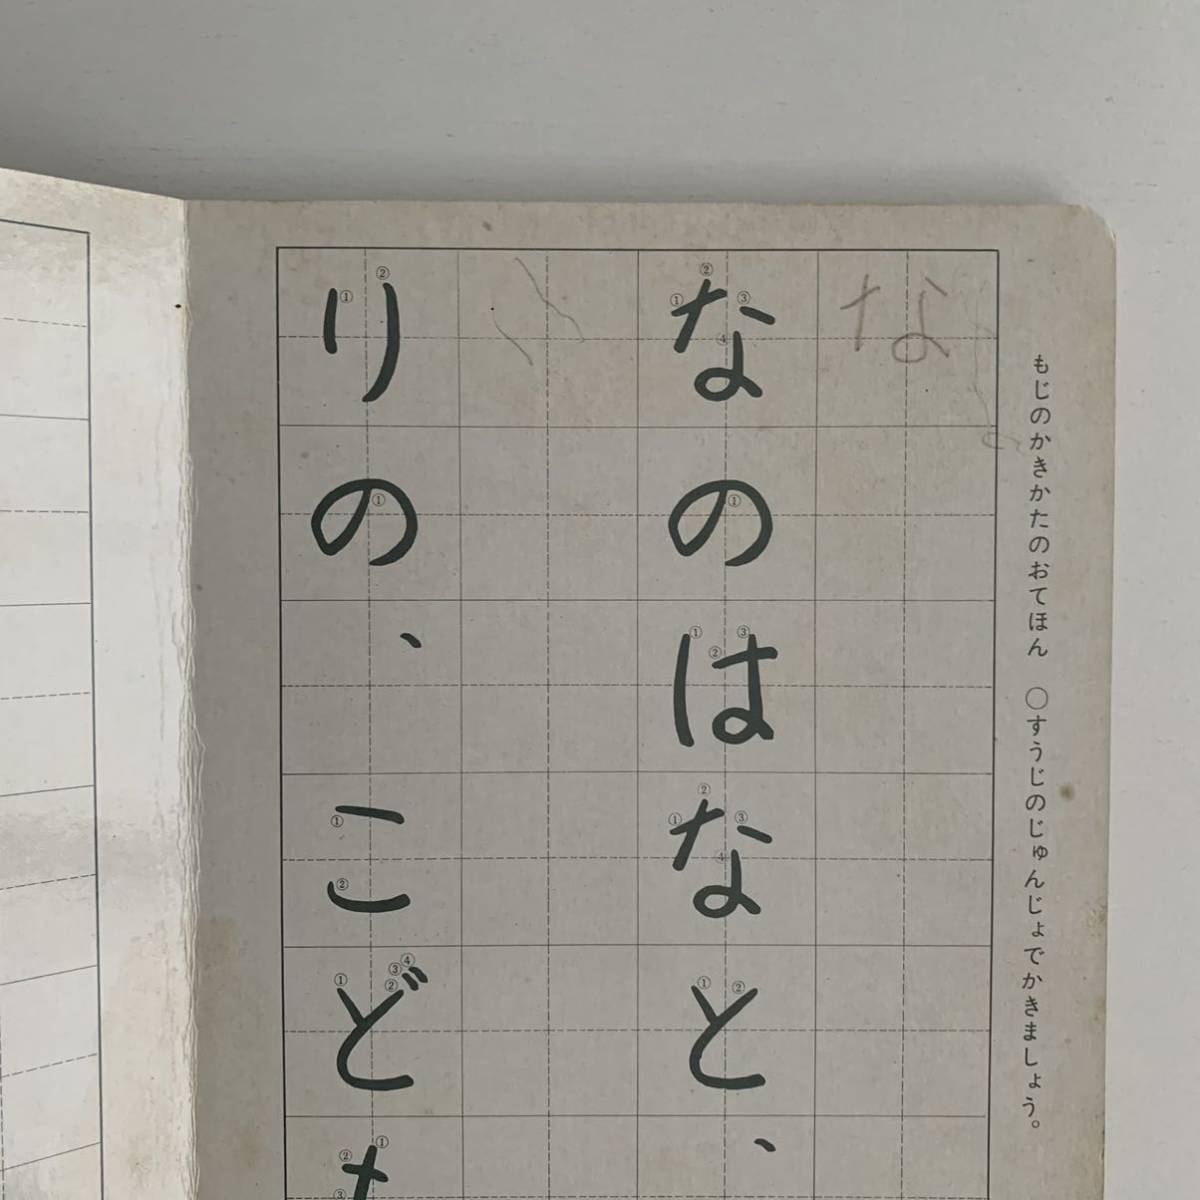 もじのかきかたのおてほん ○すうじのじゅんじょでかきましょう。
な
なのはなと、
りの、こど